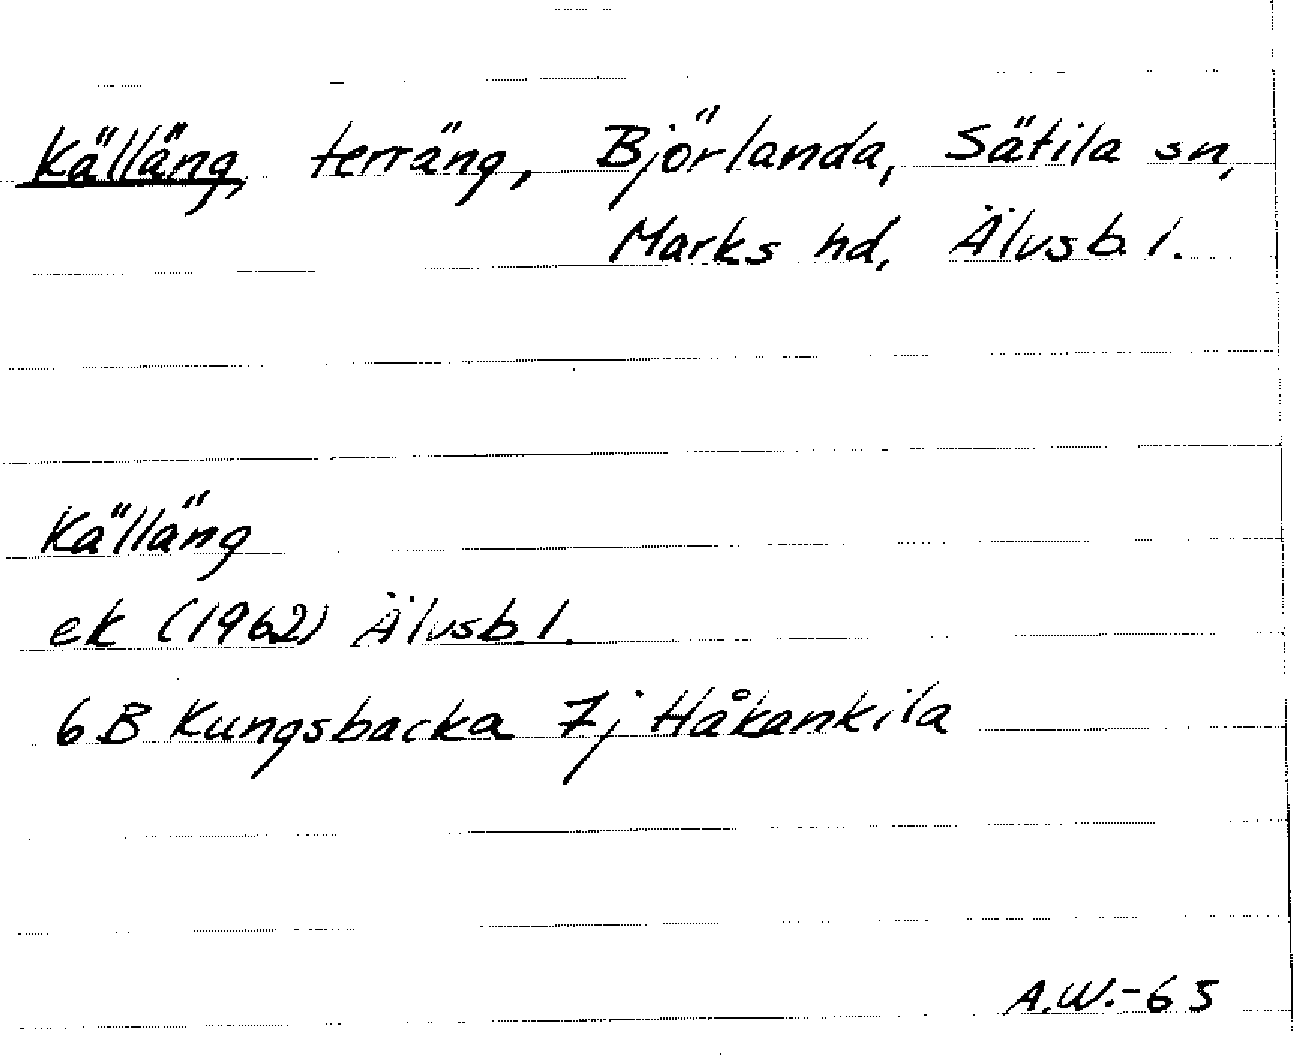 Källäng, terräng, Björlanda, Sätila sn,
Marks hd, Älvsb. l.
Källäng
ek (1962) Älvsb. l.
6B Kungsbacka 7j Håkankila
A.W.-65